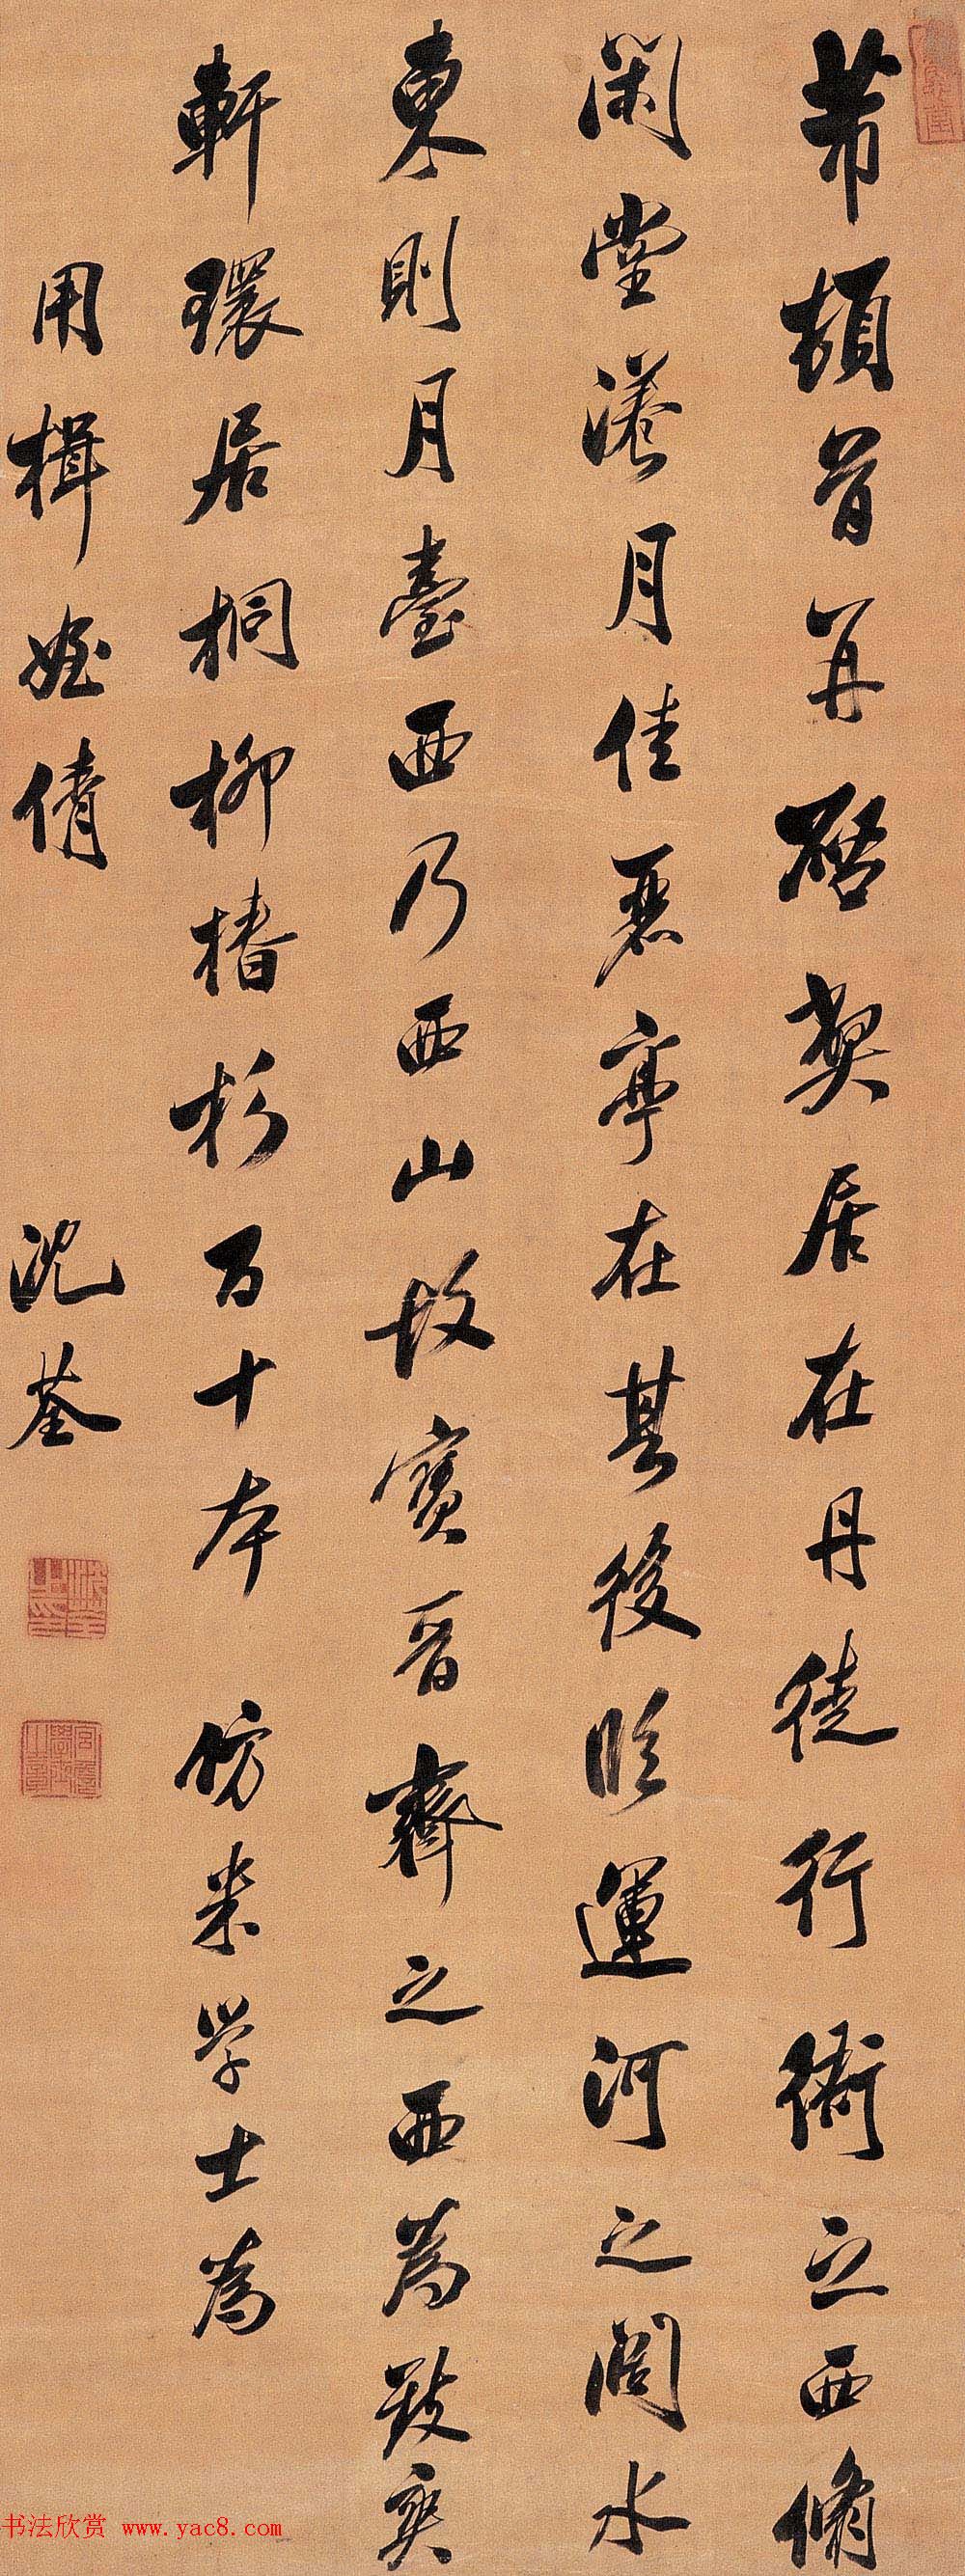 芾頓首再啓弊居在丹徒行衙之西翛
閑堂漾月佳麗亭在其後臨運河之闊水
東則月臺西乃西山故寶晉齋之西為致爽
軒環居桐柳椿杉百十本 仿米學士為
用楫姪倩 沈荃
书法欣赏 www.yac8.com